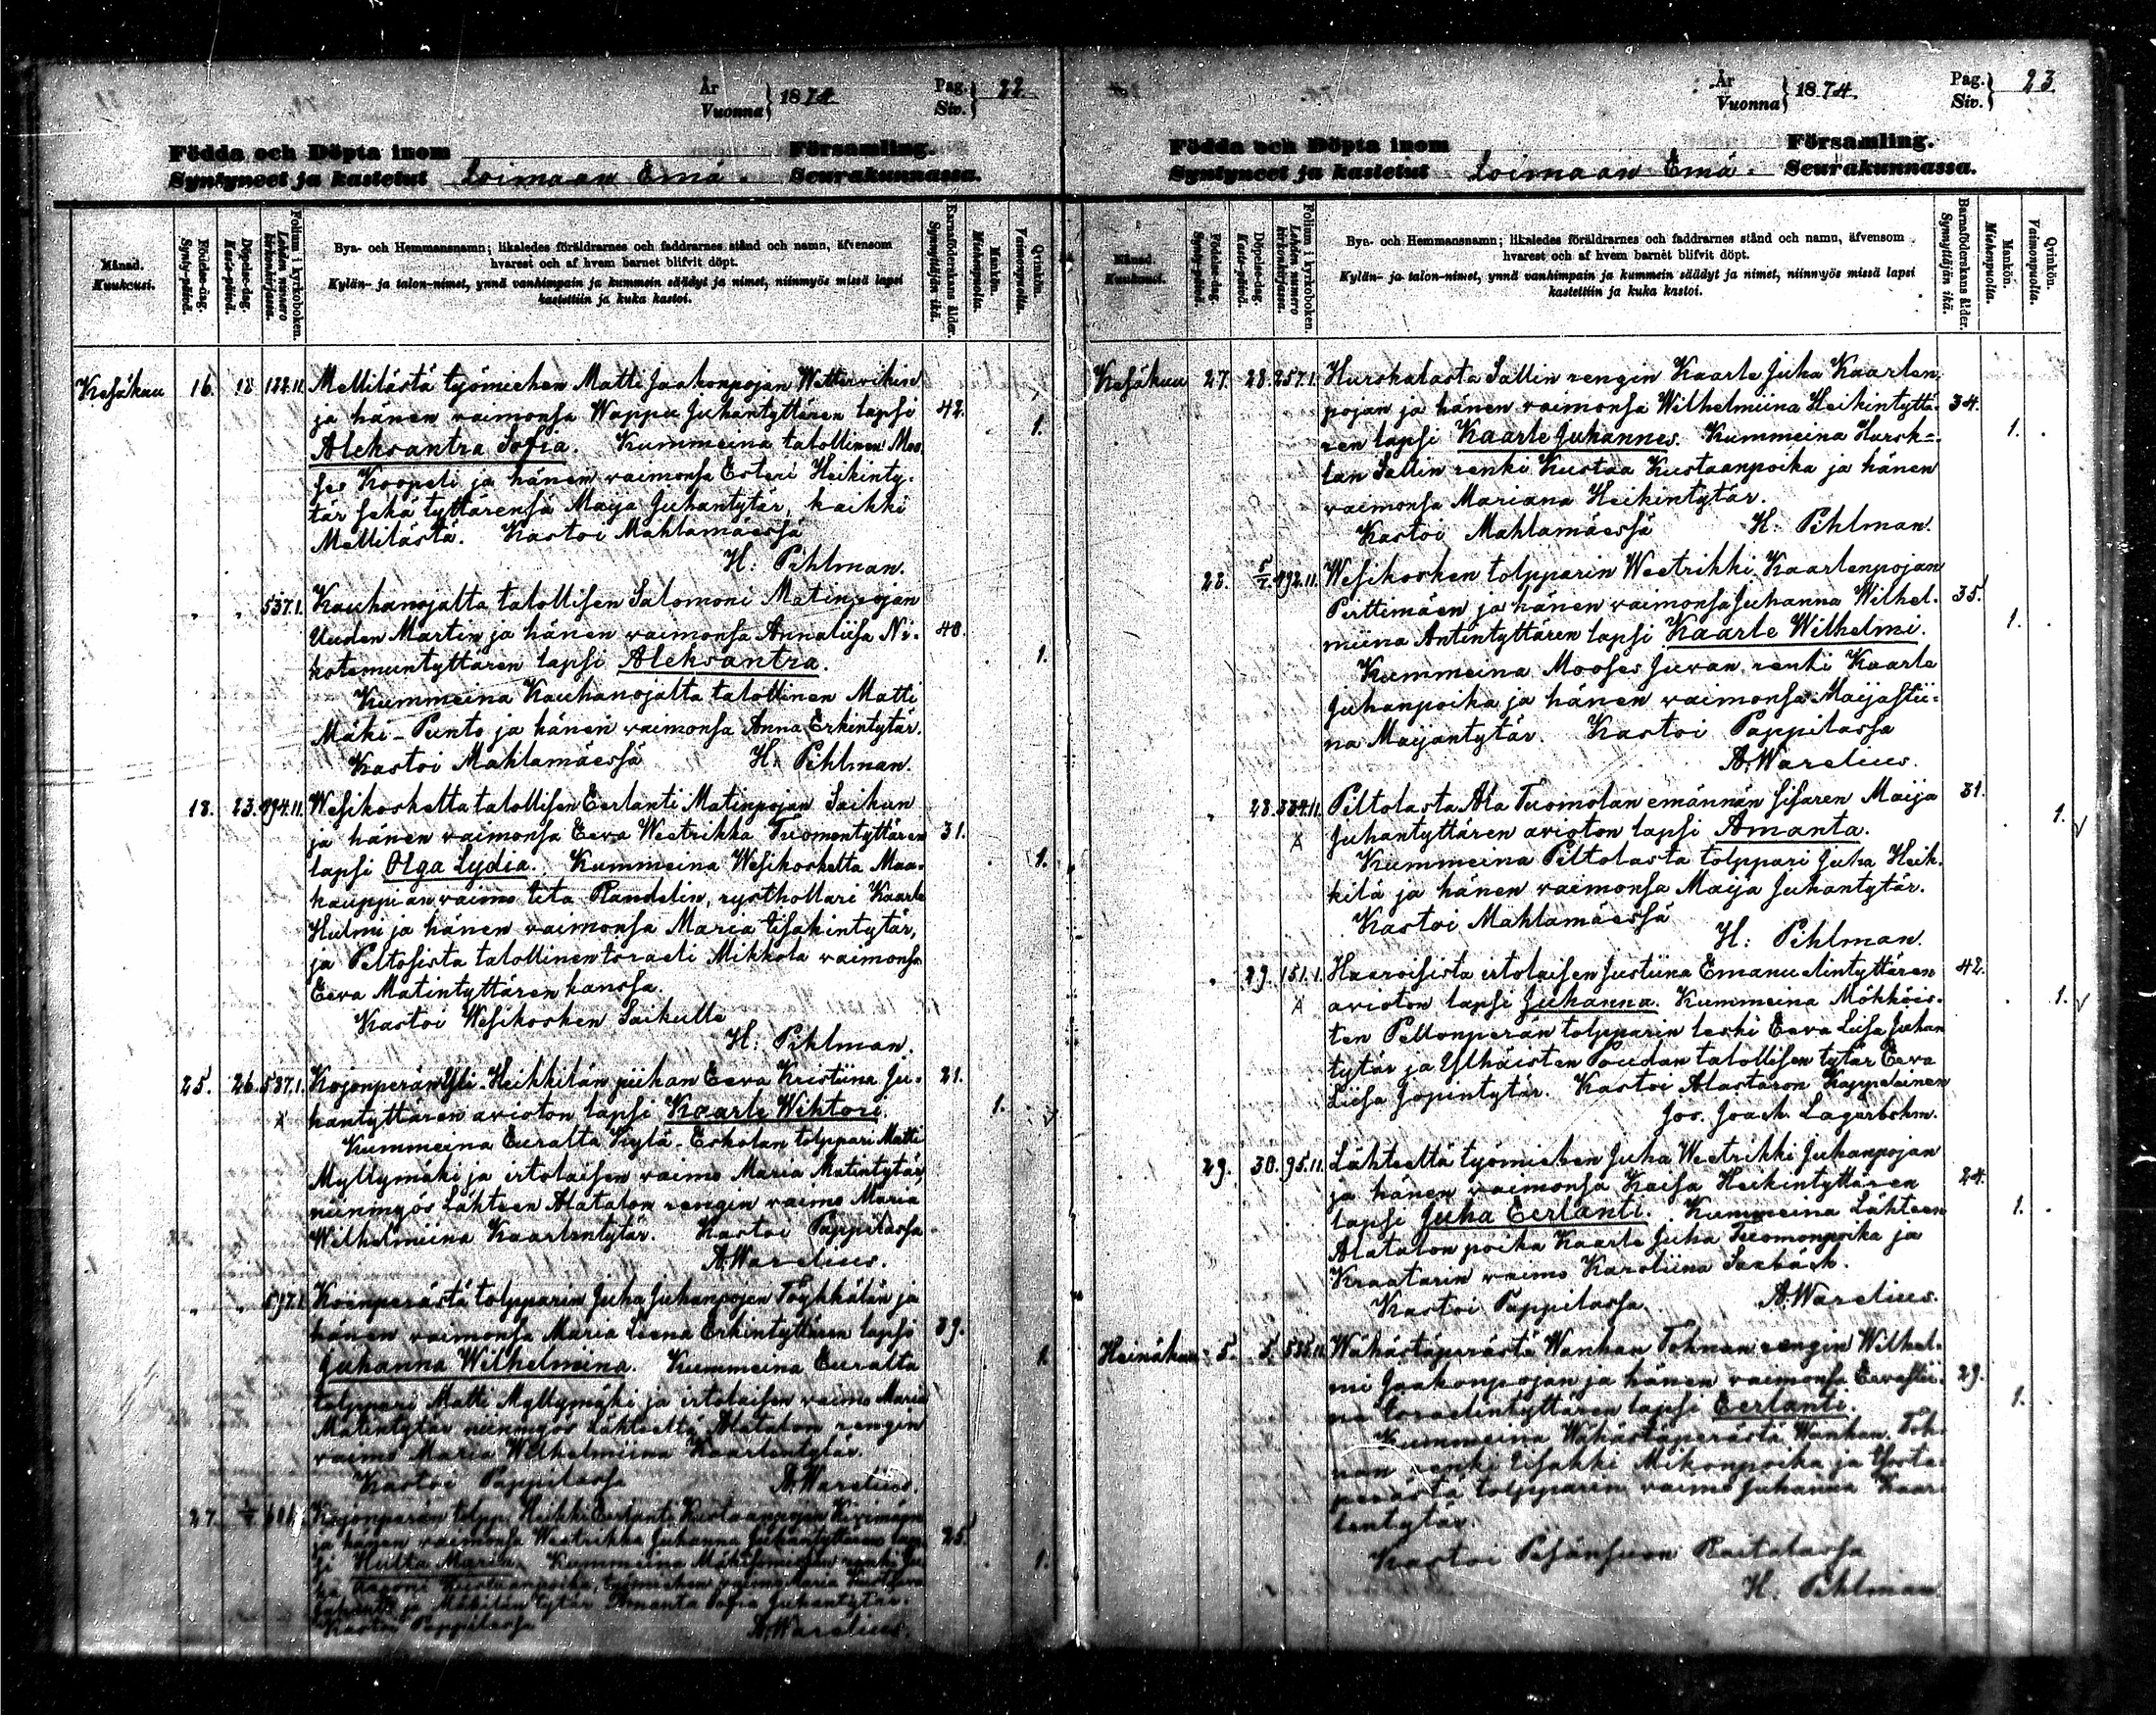 År
Vuonna } 1874
Pag.
Siv. } 22
Födda och Döpta inom Församling.
Syntyneet ja kastetut Loimaan Emä. Seurakunnassa.
Månad. Kuukausi.
Födelse-dag. Synty-päivä.
Döpelse-dag. Kaste-päivä.
Folium i kyrkoboken. Lehden numero kirkonkirjassa.
Bya- och Hemmansnamn; likaledes föräldrarnes och faddrarnes stånd och namn, äfvensom
hvarest och af hvem barnet blifvit döpt.
Kylän- ja talon-nimet, ynnä vanhimpain ja kummein säädyt ja nimet, niinmyös missä lapsi
kastettiin ja kuka kastoi.
Barnaföderskans ålder. Synnyttäjän ikä.
Mankön. Miehenpuolta.
Qvinkön. Vaimonpuolta.
Kesäkuu 16. 18 122.II. Mellilästä työmiehen Matti Jaakonpojan Wettervikin
ja hänen vaimonsa Wappu Juhantyttären lapsi 42.
Aleksantra Sofia. Kummeina talollinen Moo- 1.
ses Koopeli ja hänen vaimonsa Esteri Heikinty-
tär sekä tyttärensä Maija Juhantytär, kaikki
Mellilästä. Kastoi Mahlamäessä
H. Pihlman.
" " 537.I. Kauhanojalta talollisen Salomoni Matinpojan
Uuden Martin ja hänen vaimonsa Annaliisa Ni- 40.
kotemuntyttären lapsi Aleksantra. 1.
Kummeina Kauhanojalta talollinen Matti
Mäki-Punto ja hänen vaimonsa Anna Erkintytär.
Kastoi Mahlamäessä H. Pihlman.
18. 23. 494.II. Wesikoskelta talollisen Eerlanti Matinpojan Saikun
ja hänen vaimonsa Eeva Weetrikka Tuomontyttären 31.
lapsi Olga Lydia. Kummeina Wesikoskelta Maa- 1.
kauppian vaimo Randelin, rysthollari Kaarle
Hulmi ja hänen vaimonsa Maria Iisakintytär,
ja Peltosista talollinen Israeli Mikkola vaimonsa
Eeva Matintyttären kanssa.
Kastoi Wesikosken Saikulle
H. Pihlman.
25. 26. 537.I. Kojonperän Yli-Heikkilän piikan Eeva Kristiina Ju- 21.
hantyttären avioton lapsi Kaarle Wihtori. 1.
Kummeina Euralta Kylä-Eskolan tolppari Matti
Myllymäki ja irtolaisen vaimo Maria Matintytär
niinmyös Lähteen Alatalon rengin vaimo Maria
Wilhelmiina Kaarlentytär. Kastoi Pappilassa
A. Warelius.
" " 597.I. Koinperästä tolpparin Juha Juhanpojan Töykkälän ja
hänen vaimonsa Maria Leena Erkintyttären lapsi 39.
Juhanna Wilhelmina. Kummeina Euralta 1.
tolppari Matti Myllymäki ja irtolaisen vaimo Maria
Matintytär niinmyös Lähteeltä Alatalon rengin
vaimo Maria Wilhelmiina Kaarlentytär.
Kastoi Pappilassa A. Warelius.
27. Kojonperän tolpp. Heikki Eerlanti Kustaanpojan
ja hänen vaimonsa Weetrikka Juhanna Juhantyttären lap- 25.
si Hulta Maria. Kummeina renki Ju- 1.
ha Kustaanpoika, työmiehen vaimo Maria
ja Mäkilän tytär Amanta Sofia Juhantytär.
Kastoi Pappilassa A. Warelius.
År
Vuonna } 1874.
Pag.
Siv. } 23
Födda och Döpta inom Församling.
Syntyneet ja kastetut Loimaan Emä. Seurakunnassa.
Månad. Kuukausi.
Födelse-dag. Synty-päivä.
Döpelse-dag. Kaste-päivä.
Folium i kyrkoboken. Lehden numero kirkonkirjassa.
Bya- och Hemmansnamn; likaledes föräldrarnes och faddrarnes stånd och namn, äfvensom
hvarest och af hvem barnet blifvit döpt.
Kylän- ja talon-nimet, ynnä vanhimpain ja kummein säädyt ja nimet, niinmyös missä lapsi
kastettiin ja kuka kastoi.
Barnaföderskans ålder. Synnyttäjän ikä.
Mankön. Miehenpuolta.
Qvinkön. Vaimonpuolta.
Kesäkuu 27. 28. 257.I. Hurskalasta Sallin rengin Kaarle Juha Kaarlen-
pojan ja hänen vaimonsa Wilhelmiina Heikintyttä- 34.
ren lapsi Kaarle Juhannes. Kummeina Hursk- 1.
lan Sallin renki Kustaa Kustaanpoika ja hänen
vaimonsa Mariana Heikintytär.
Kastoi Mahlamäessä H. Pihlman.
28. 5/7. 492.II. Wesikosken tolpparin Weetrikki Kaarlenpojan
Perttimäen ja hänen vaimonsa Juhanna Wilhel- 35.
miina Antintyttären lapsi Kaarle Wilhelmi. 1.
Kummeina Mooses Juvan renki Kaarle
Juhanpoika ja hänen vaimonsa Maijastii-
na Maijantytär. Kastoi Pappilassa
A. Warelius.
" 28. 334.II. Piltolasta Ala Tuomolan emännän sisaren Maija 31.
Juhantyttären avioton lapsi Amanta. 1.
Kummeina Piltolasta tolppari Juha Heik-
kilä ja hänen vaimonsa Maija Juhantytär.
Kastoi Mahlamäessä
H. Pihlman.
" 29. 151.I. Haaroisista irtolaisen Justiina Emanuelintyttären 42.
avioton lapsi Juhanna. Kummeina Mökköis- 1.
ten Peltonperän tolpparin leski Eeva Liisa Juhan
tytär ja Ylhäisten Poudan talollisen tytär Eeva
Liisa Jopintytär. Kastoi Alastaron Kappelainen
Jos. Joach. Lagerbohm.
29. 30. 95.II. Lähteeltä työmiehen Juha Weetrikki Juhanpojan
ja hänen vaimonsa Kaisa Heikintyttären 24.
lapsi Juha Eerlanti. Kummeina Lähteen 1.
Alatalon poika Kaarle Juha Tuomonpoika ja
Kraatarin vaimo Karoliina
Kastoi Pappilassa. A. Warelius.
Heinäkuu 5. 5. 535.II. Wähästäperästä Wanhan Tohnan rengin Wilhel-
mi Jaakonpojan ja hänen vaimonsa Eevastii- 29.
na Israelintyttären lapsi Eerlanti. 1.
Kummeina Wähästäperästä Wanhan Toh-
nan renki Iisakki Mikonpoika ja
perästä tolpparin vaimo Juhanna Kaar-
lentytär.
Kastoi Pesänsuon Raitalassa
H. Pihlman.